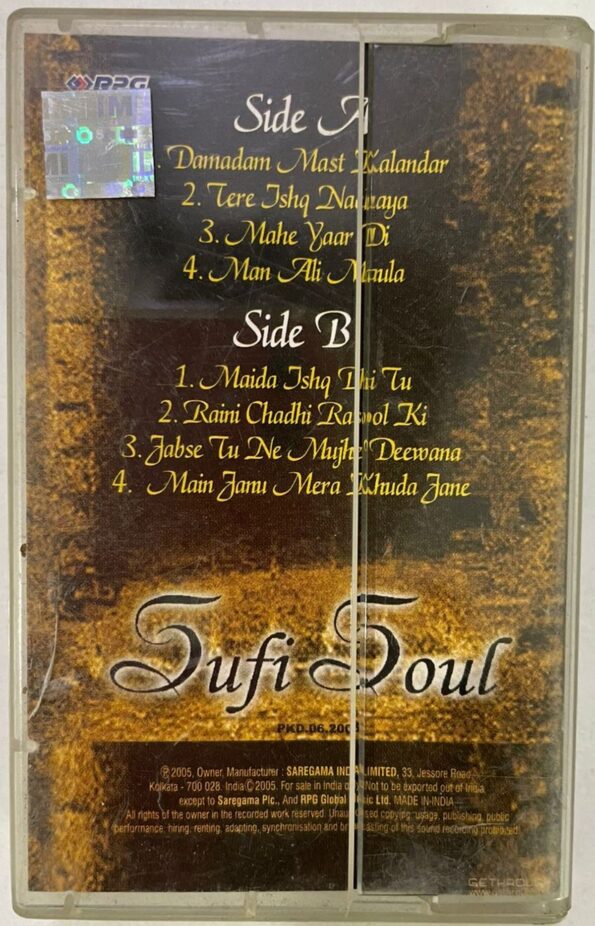 RPG
Side A
Damadam Mast Kalandar
2. Tere Ishq Nachaya
3. Mahe Yaar Di
4. Man Ali Maula
Side B
1. Maida Ishq Bhi Tu
2. Raini Chadhi Rasool Ki
3. Jabse Tu Ne Mujhe Deewana
4. Main Janu Mera Khuda Jane
Sufi Soul
PKD.06.200
℗ 2005, Owner, Manufacturer : SAREGAMA INDIA LIMITED, 33, Jessore Road,
Kolkata - 700 028. India © 2005. For sale in India only. Not to be exported out of India
except to Saregama Plc., And RPG Global Music Ltd. MADE IN INDIA
All rights of the owner in the recorded work reserved. Unauthorised copying, usage, publishing, public
performance, hiring, renting, adapting, synchronisation and broadcasting of this sound recording prohibited